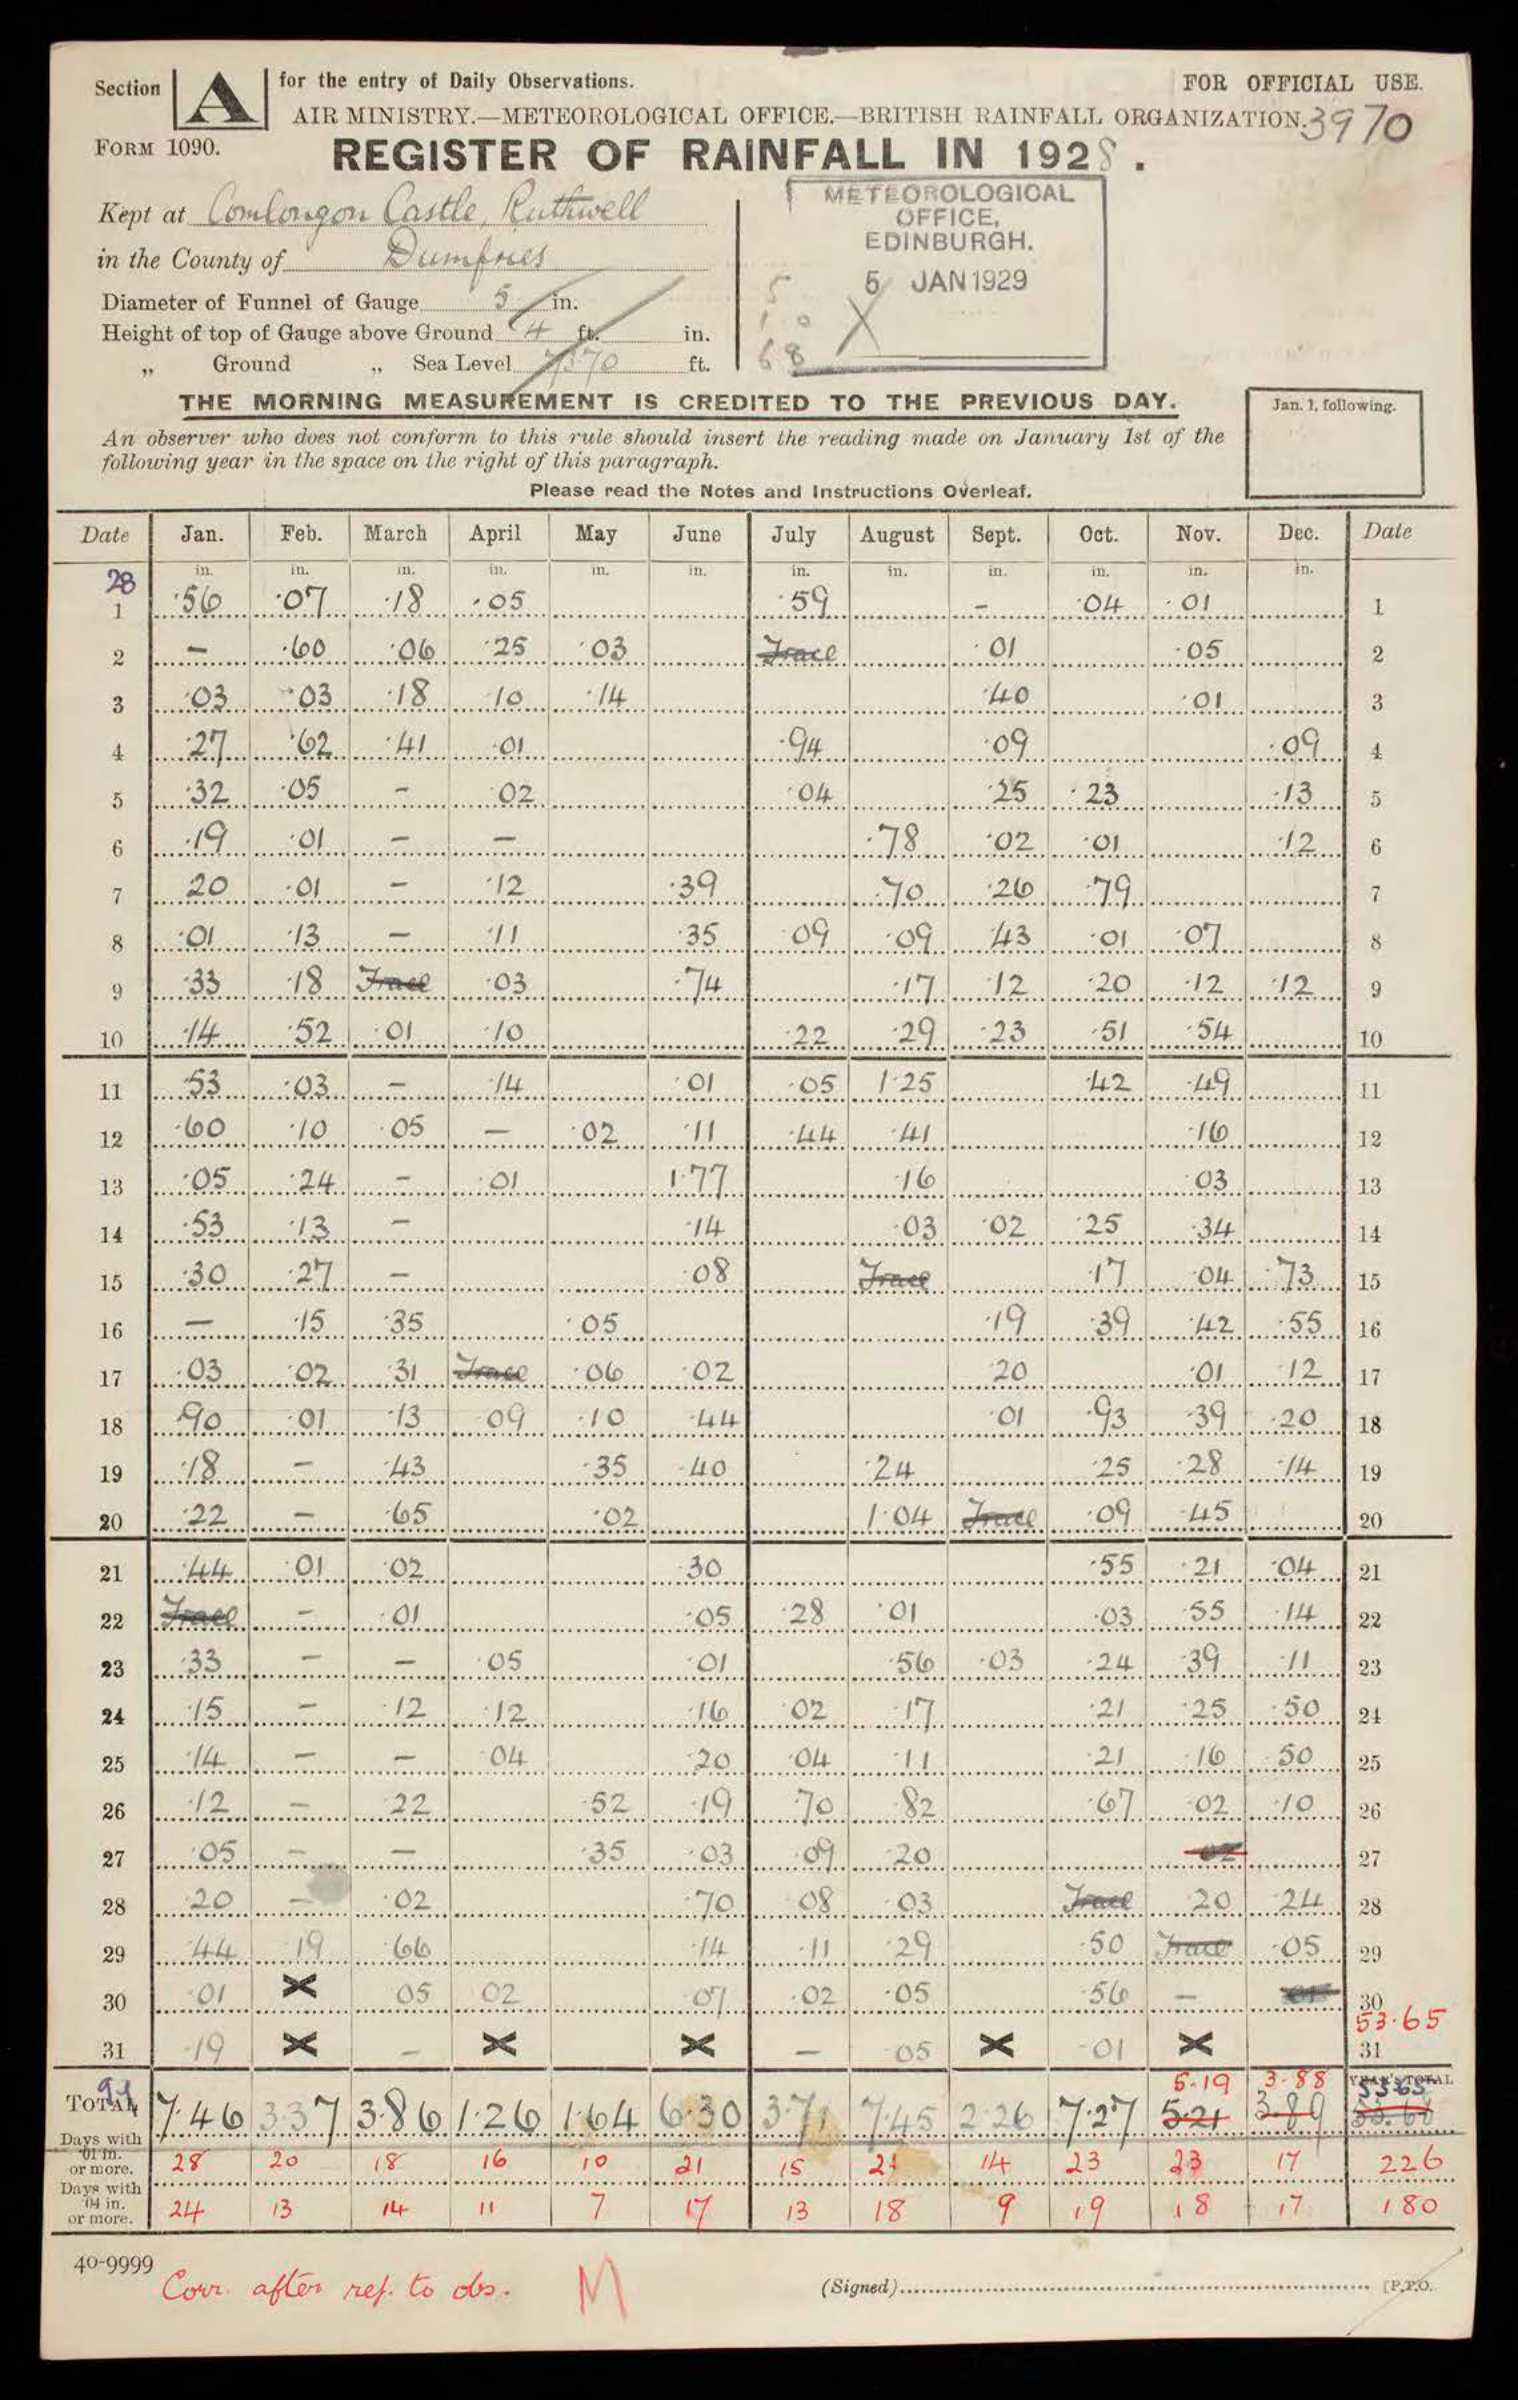 Section A for the entry of Daily Observations. FOR OFFICIAL USE.
AIR MINISTRY.—METEOROLOGICAL OFFICE.—BRITISH RAINFALL ORGANIZATION. 3970
FORM 1090. REGISTER OF RAINFALL IN 1928.
Kept at Comlongon Castle, Ruthwell
in the County of Dumfries
METEOROLOGICAL
OFFICE,
EDINBURGH.
5 JAN 1929
Diameter of Funnel of Gauge 5 in.
Height of top of Gauge above Ground 4 ft. in.
„ Ground „ Sea Level ft.
5
1 0
68
THE MORNING MEASUREMENT IS CREDITED TO THE PREVIOUS DAY.
An observer who does not conform to this rule should insert the reading made on January 1st of the
following year in the space on the right of this paragraph.
Jan. 1, following.
Please read the Notes and Instructions Overleaf.
Date Jan. Feb. March April May June July August Sept. Oct. Nov. Dec. Date
28 in. in. in. in. in. in. in. in. in. in. in. in.
1 ·56 ·07 ·18 ·05 ·59 – ·04 ·01 1
2 – ·60 ·06 ·25 ·03 Trace ·01 ·05 2
3 ·03 ·03 ·18 ·10 ·14 ·40 ·01 3
4 ·27 ·62 ·41 ·01 ·94 ·09 ·09 4
5 ·32 ·05 – ·02 ·04 ·25 ·23 ·13 5
6 ·19 ·01 – – ·78 ·02 ·01 ·12 6
7 20 ·01 – ·12 ·39 ·70 ·26 ·79 7
8 ·01 ·13 – ·11 ·35 ·09 ·09 ·43 ·01 ·07 8
9 ·33 ·18 Trace ·03 ·74 ·17 ·12 ·20 ·12 ·12 9
10 ·14 ·52 ·01 ·10 ·22 ·29 ·23 ·51 ·54 10
11 ·53 ·03 – ·14 ·01 ·05 1·25 ·42 ·49 11
12 ·60 ·10 ·05 – ·02 ·11 ·44 ·41 ·16 12
13 ·05 ·24 – ·01 1·77 ·16 ·03 13
14 ·53 ·13 – ·14 ·03 ·02 ·25 ·34 14
15 ·30 ·27 – ·08 Trace ·17 ·04 ·73 15
16 – ·15 ·35 ·05 ·19 ·39 ·42 ·55 16
17 ·03 ·02 ·31 Trace ·06 ·02 ·20 ·01 ·12 17
18 ·90 ·01 ·13 ·09 ·10 ·44 ·01 ·93 ·39 ·20 18
19 ·18 – ·43 ·35 ·40 ·24 ·25 ·28 ·14 19
20 ·22 – ·65 ·02 1·04 Trace ·09 ·45 20
21 ·44 ·01 ·02 ·30 ·55 ·21 ·04 21
22 Trace – ·01 ·05 ·28 ·01 ·03 ·55 ·14 22
23 ·33 – – ·05 ·01 ·56 ·03 ·24 ·39 ·11 23
24 ·15 – ·12 ·12 ·16 ·02 ·17 ·21 ·25 ·50 24
25 ·14 – – ·04 ·20 ·04 ·11 ·21 ·16 ·50 25
26 ·12 – ·22 ·52 ·19 ·70 ·82 ·67 ·02 ·10 26
27 ·05 – – ·35 ·03 ·09 ·20 ·02 27
28 ·20 – ·02 ·70 ·08 ·03 Trace ·20 ·24 28
29 ·44 ·19 ·66 ·14 ·11 ·29 ·50 Trace ·05 29
30 ·01 X ·05 ·02 ·07 ·02 ·05 ·56 – ·01 30
53·65
31 ·19 X – X X – ·05 X ·01 X 31
5·19 3·88 YEAR'S TOTAL
53·65
TOTAL 7·46 3·37 3·86 1·26 1·64 6·30 3·71 7·45 2·26 7·27 5·21 3·89 53.68
Days with ·01 in. or more. 28 20 18 16 10 21 15 21 14 23 23 17 226
Days with ·04 in. or more. 24 13 14 11 7 17 13 18 9 19 18 17 180
40-9999
Corr. after ref. to obs. M
(Signed) [P.T.O.